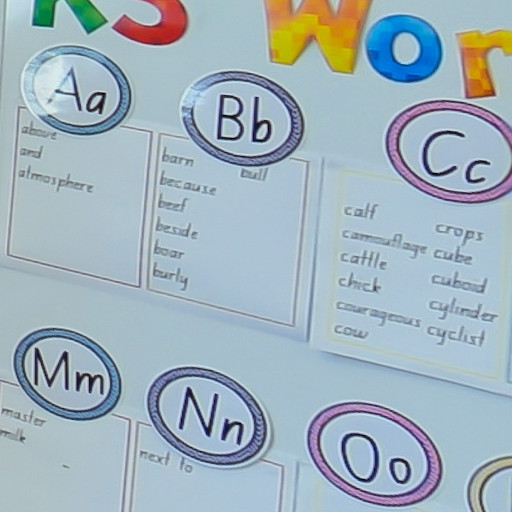 KS Wor
Aa
above
and
atmosphere
Bb
barn
because
beef
beside
boar
burly
bull
Cc
calf
camouflage
cattle
chick
courageous
cow
crops
cube
cuboid
cylinder
cyclist
Mm
master
milk
Nn
next to
Oo